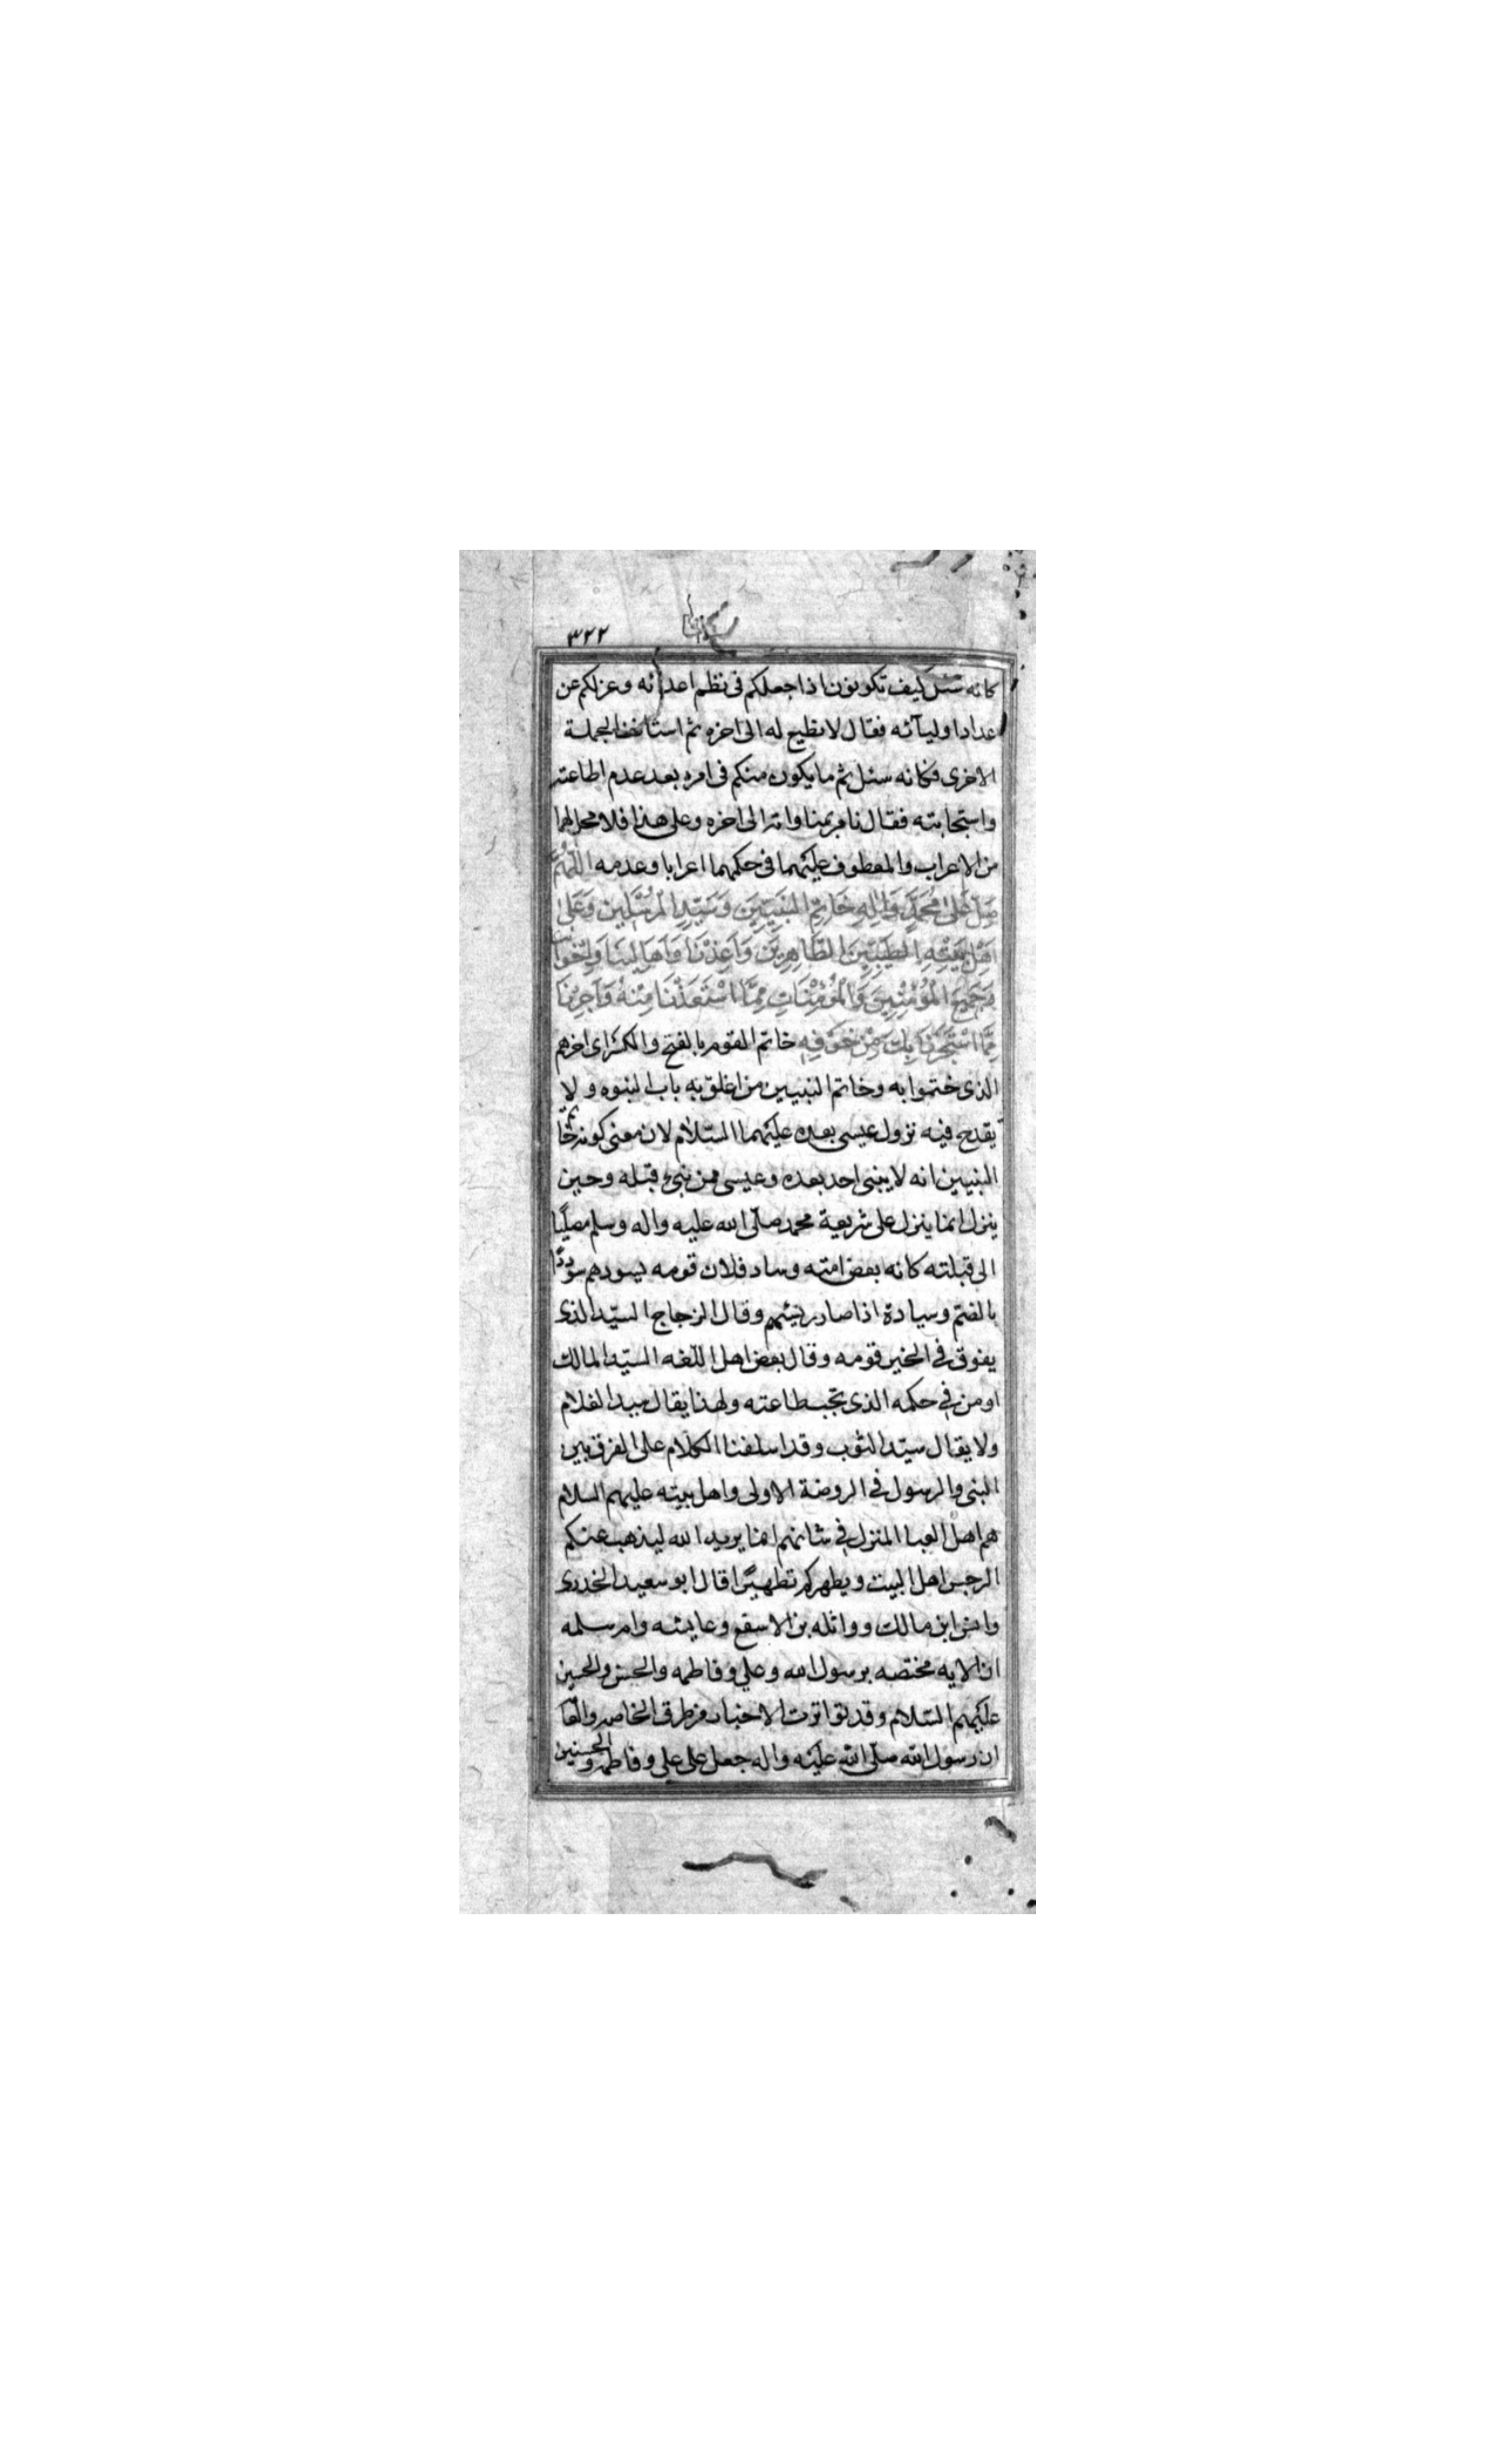 ٣٢٢
كانه سئل كيف تكونون اذا جعلكم فى نظم اعدائه وعزلكم عن
عداد اوليآئه فقال لا نطيع له الى اخره ثم استانف الجملة
الاخرى فكانه سئل ثم ما يكون منكم فى امره بعد عدم اطاعته
واستجابته فقال نامر بمناواته الى اخره وعلى هذا فلا محل لهما
من الاعراب والمعطوف عليهما فى حكمهما اعرابا وعدمه اللّهمّ
صَلِّ عَلىٰ مُحَمَّدٍ وَاٰلِهِ خَاتِمِ النَّبِيّينَ وَسَيِّدِ الْمُرْسَلِينَ وَعَلىٰ
اَهْلِ بَيْتِهِ الطَّيِّبينَ الطَّاهِرِينَ وَاَعِذْنَا وَاَهَالِينَا وَاِخْوَاننَا
وَجَميعَ الْمُؤْمِنِينَ وَالْمُؤْمِنَاتِ مِمَّا اسْتَعَذْنَا مِنْهُ وَاَجِرْنَا
مِمَّا اسْتَجَرْنَا بِكَ مِنْ خَوْفِهِ خاتم القوم بالفتح والكسر اى اخرهم
الذى ختموا به وخاتم النبيين من اغلق به باب النبوه ولا
يقدح فيه نزول عيسى بعده عليهما السّلام لان معنى كونه خاتم
النبيين انه لا ينبى احد بعده وعيسى ممن نبئ قبله وحين
ينزل انما ينزل على شريعة محمد صلّى الله عليه واله وسلم مصلّيا
الى قبلته كانه بعض امته وساد فلان قومه يسودهم سوددًا
بالضم وسيادة اذا صار رئيسهم وقال الزجاج السيّد الذى
يفوق فى الخير قومه وقال بعض اهل اللغه السيّد المالك
او من فى حكمه الذى تجب طاعته ولهذا يقال سيد الغلام
ولا يقال سيّد الثوب وقد اسلفنا الكلام على الفرق بين
النبى والرسول فى الروضة الاولى واهل بيته عليهم السلام
هم اهل العبا المنزل فى شانهم انما يريد الله ليذهب عنكم
الرجس اهل البيت ويطهركم تطهيرًا قال ابو سعيد الخدرى
وانس ابن مالك وواثله بن الاسقع وعايشه وام سلمه
ان الايه مختصه برسول الله وعلي وفاطمه والحسن والحسين
عليهم السّلام وقد تواترت الاخبار من طرق الخاص والعا
ان رسول الله صلّى الله عليه واله جعل على علي وفاطمه والحسنين